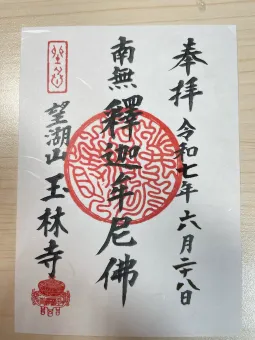 奉拝 令和七年六月二十八日
南無釋迦牟尼佛
望湖山 玉林寺